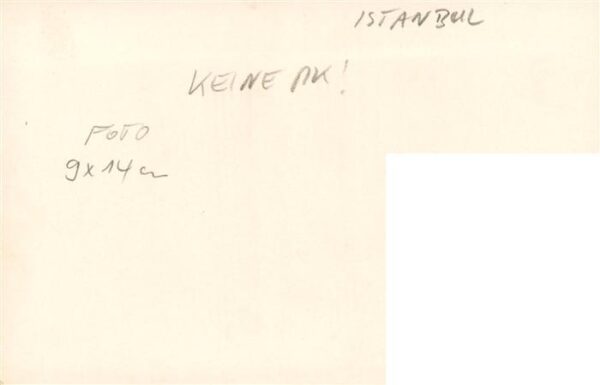 ISTANBUL
KEINE AK!
FOTO
9x14 cm